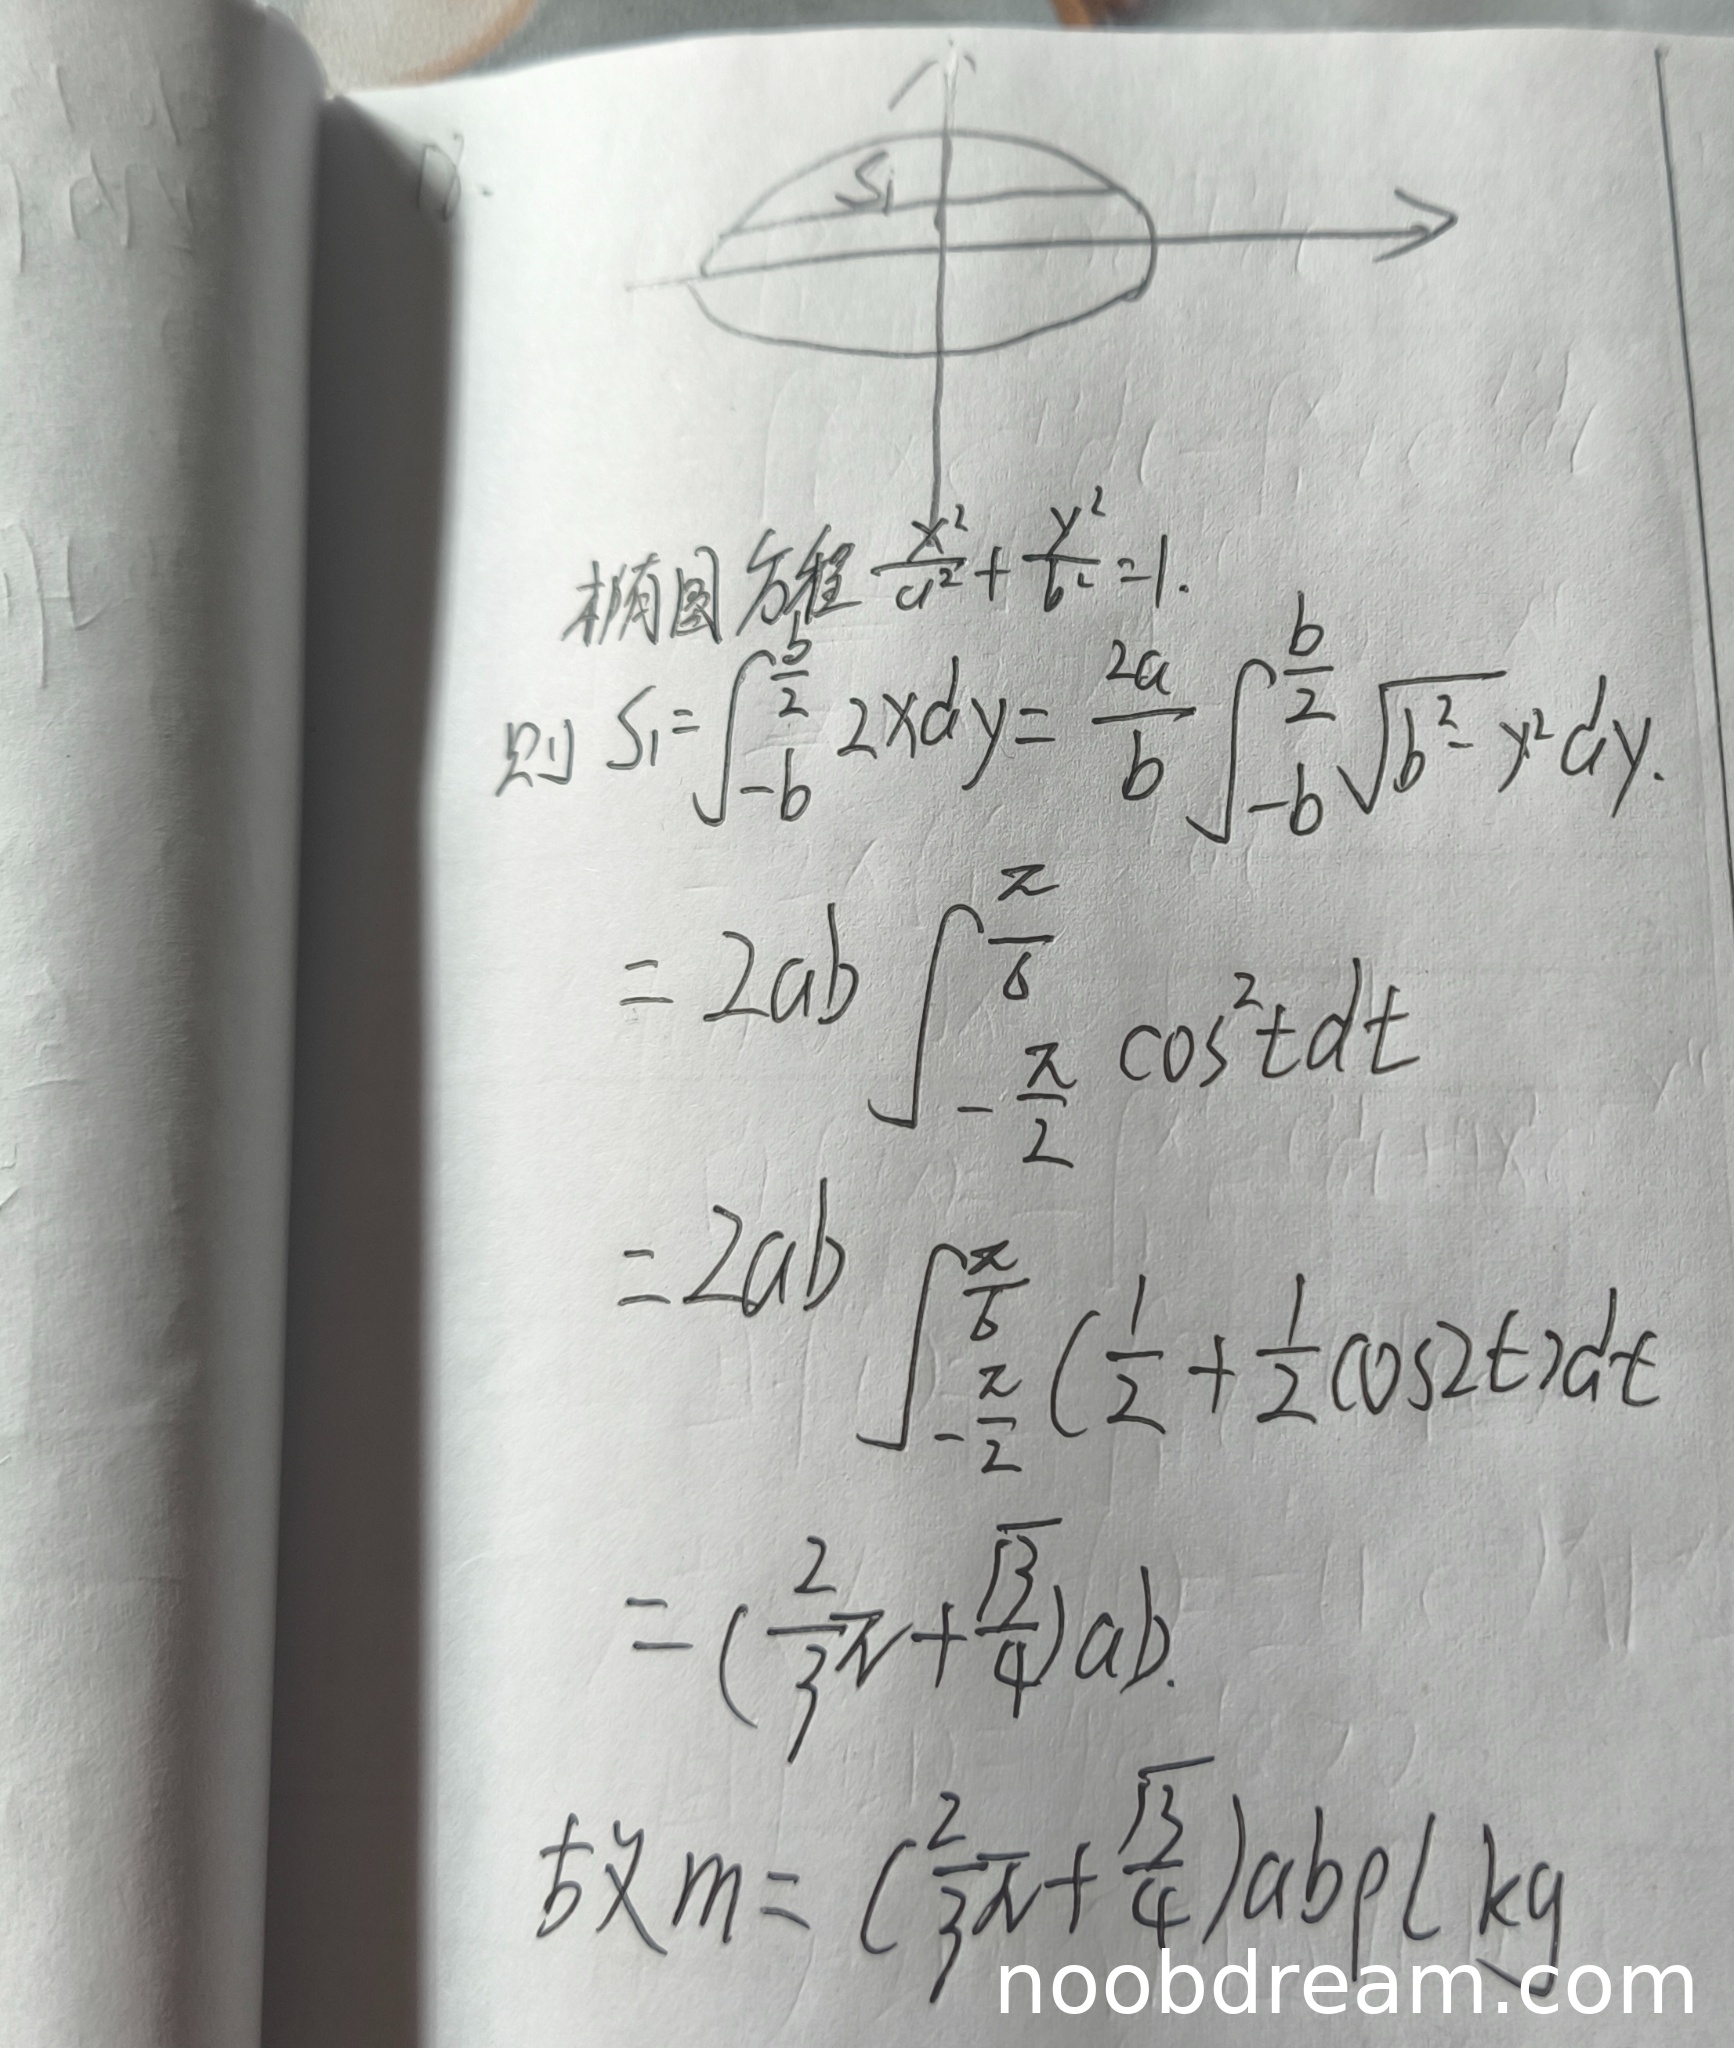 S₁
椭圆方程 x²/a² + y²/b² = 1.
则 S₁ = ∫_{-b}^{b/2} 2xdy = 2a/b ∫_{-b}^{b/2} √(b²-y²) dy.
= 2ab ∫_{-π/2}^{π/6} cos²t dt
= 2ab ∫_{-π/2}^{π/6} (1/2 + 1/2 cos2t) dt
= (2/3 π + √3/4) ab.
故 m = (2/3 π + √3/4) abρl kg
noobdream.com